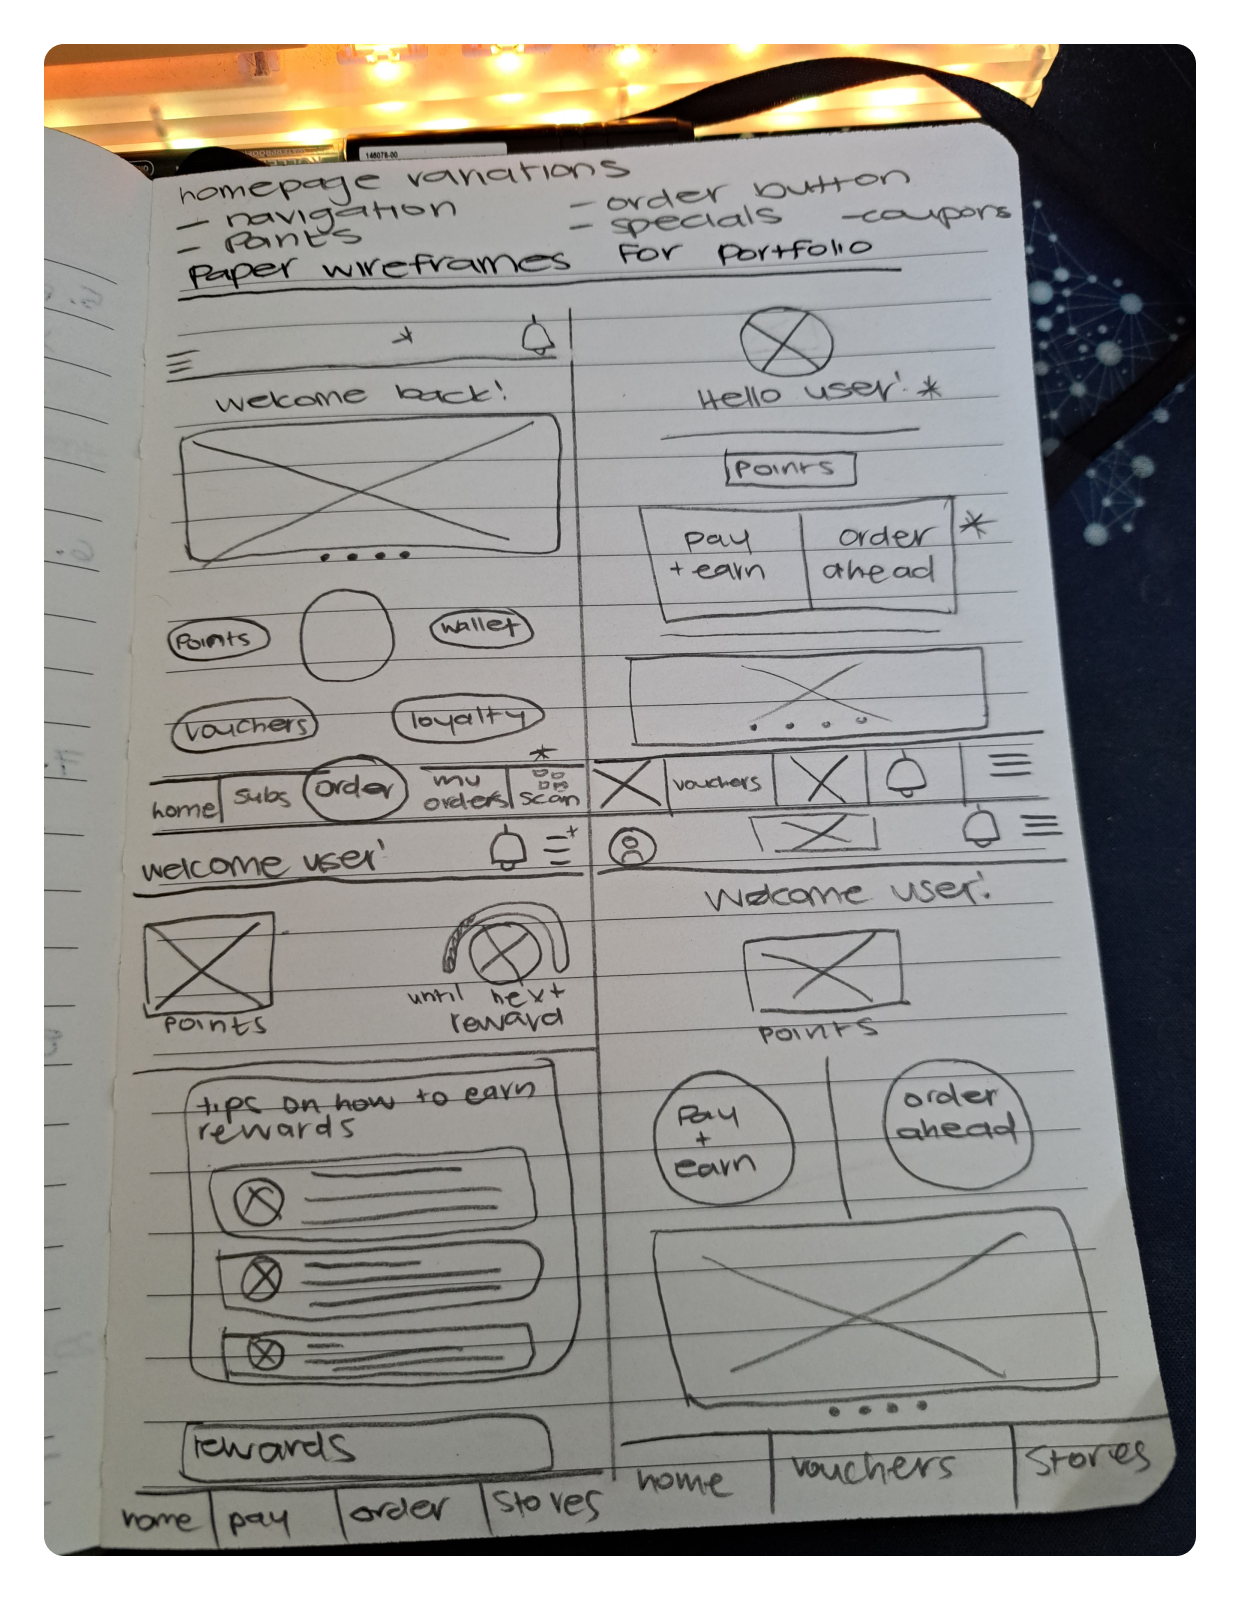 148078-00
homepage variations
- navigation
- Points
- order button
- specials - coupons
Paper wireframes for Portfolio
welcome back!
Points
wallet
vouchers
loyalty
home
subs
order
my
orders
scan
Hello user!
Points
pay
+ earn
order
ahead
vouchers
welcome user!
points
until next
reward
tips on how to earn
rewards
rewards
home
pay
order
stores
Welcome user!
points
Pay
+
earn
order
ahead
home
vouchers
stores